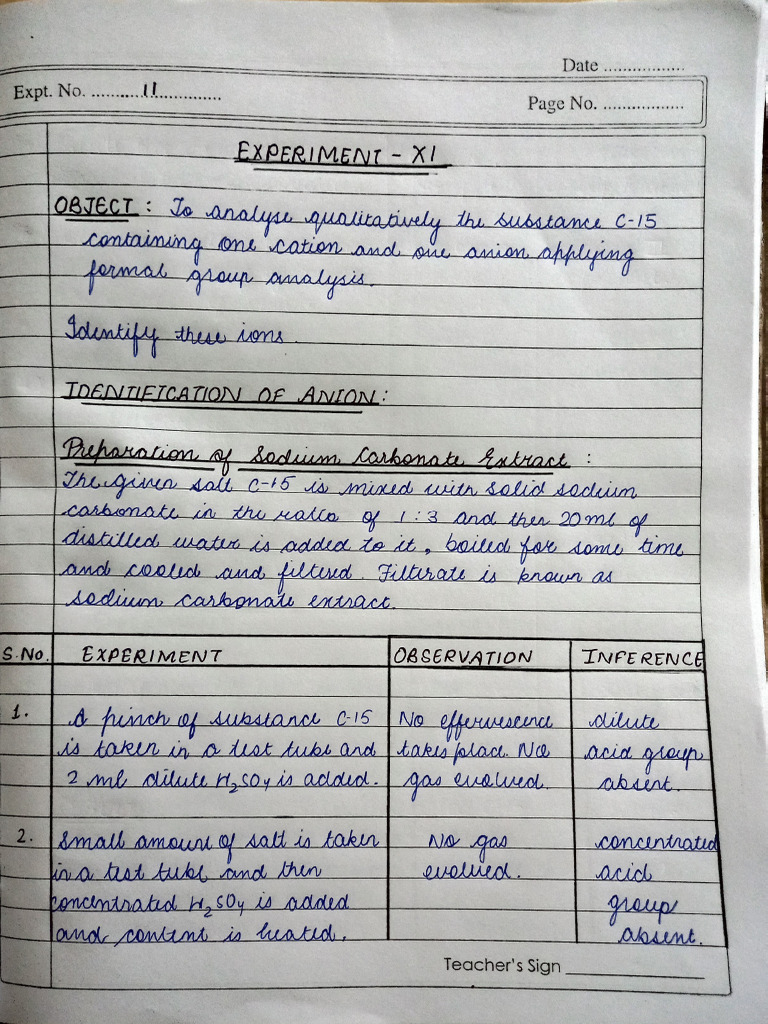 Date ................
Expt. No. ..........11.............
Page No. ................
EXPERIMENT - XI
OBJECT : To analyse qualitatively the substance C-15
containing one cation and one anion applying
formal group analysis.
Identify these ions.
IDENTIFICATION OF ANION:
Preparation of Sodium Carbonate Extract :
The given salt C-15 is mixed with solid sodium
carbonate in the ratio of 1:3 and then 20ml of
distilled water is added to it, boiled for some time
and cooled and filtered. Filterate is known as
sodium carbonate extract.
S.No. EXPERIMENT OBSERVATION INFERENCE
1. A pinch of substance C-15 No effervescence dilute
is taken in a test tube and takes place. No acid group
2 ml dilute H2SO4 is added. gas evolved. absent.
2. Small amount of salt is taken No gas concentrated
in a test tube and then evolved. acid
concentrated H2SO4 is added group
and content is heated. absent.
Teacher's Sign ______________